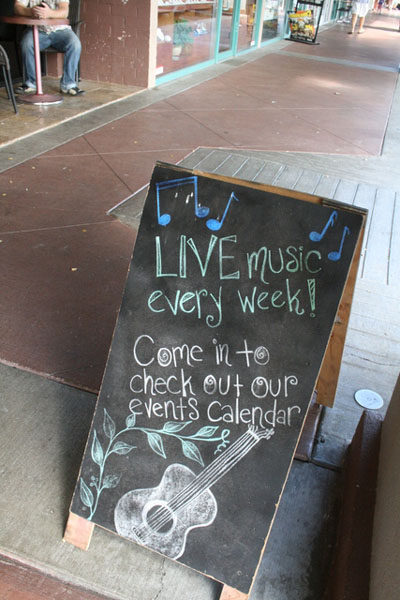 LIVE music
every week!
Come in to
check out our
events calendar